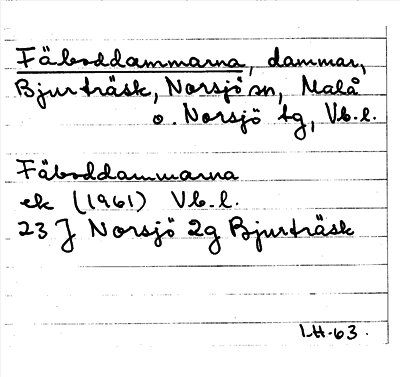 Fäboddammarna, dammar,
Bjurträsk, Norsjö sn, Malå
o. Norsjö tg, Vb.l.
Fäboddammarna
ek (1961) Vb.l.
23 J Norsjö 2g Bjurträsk
I.H-63.